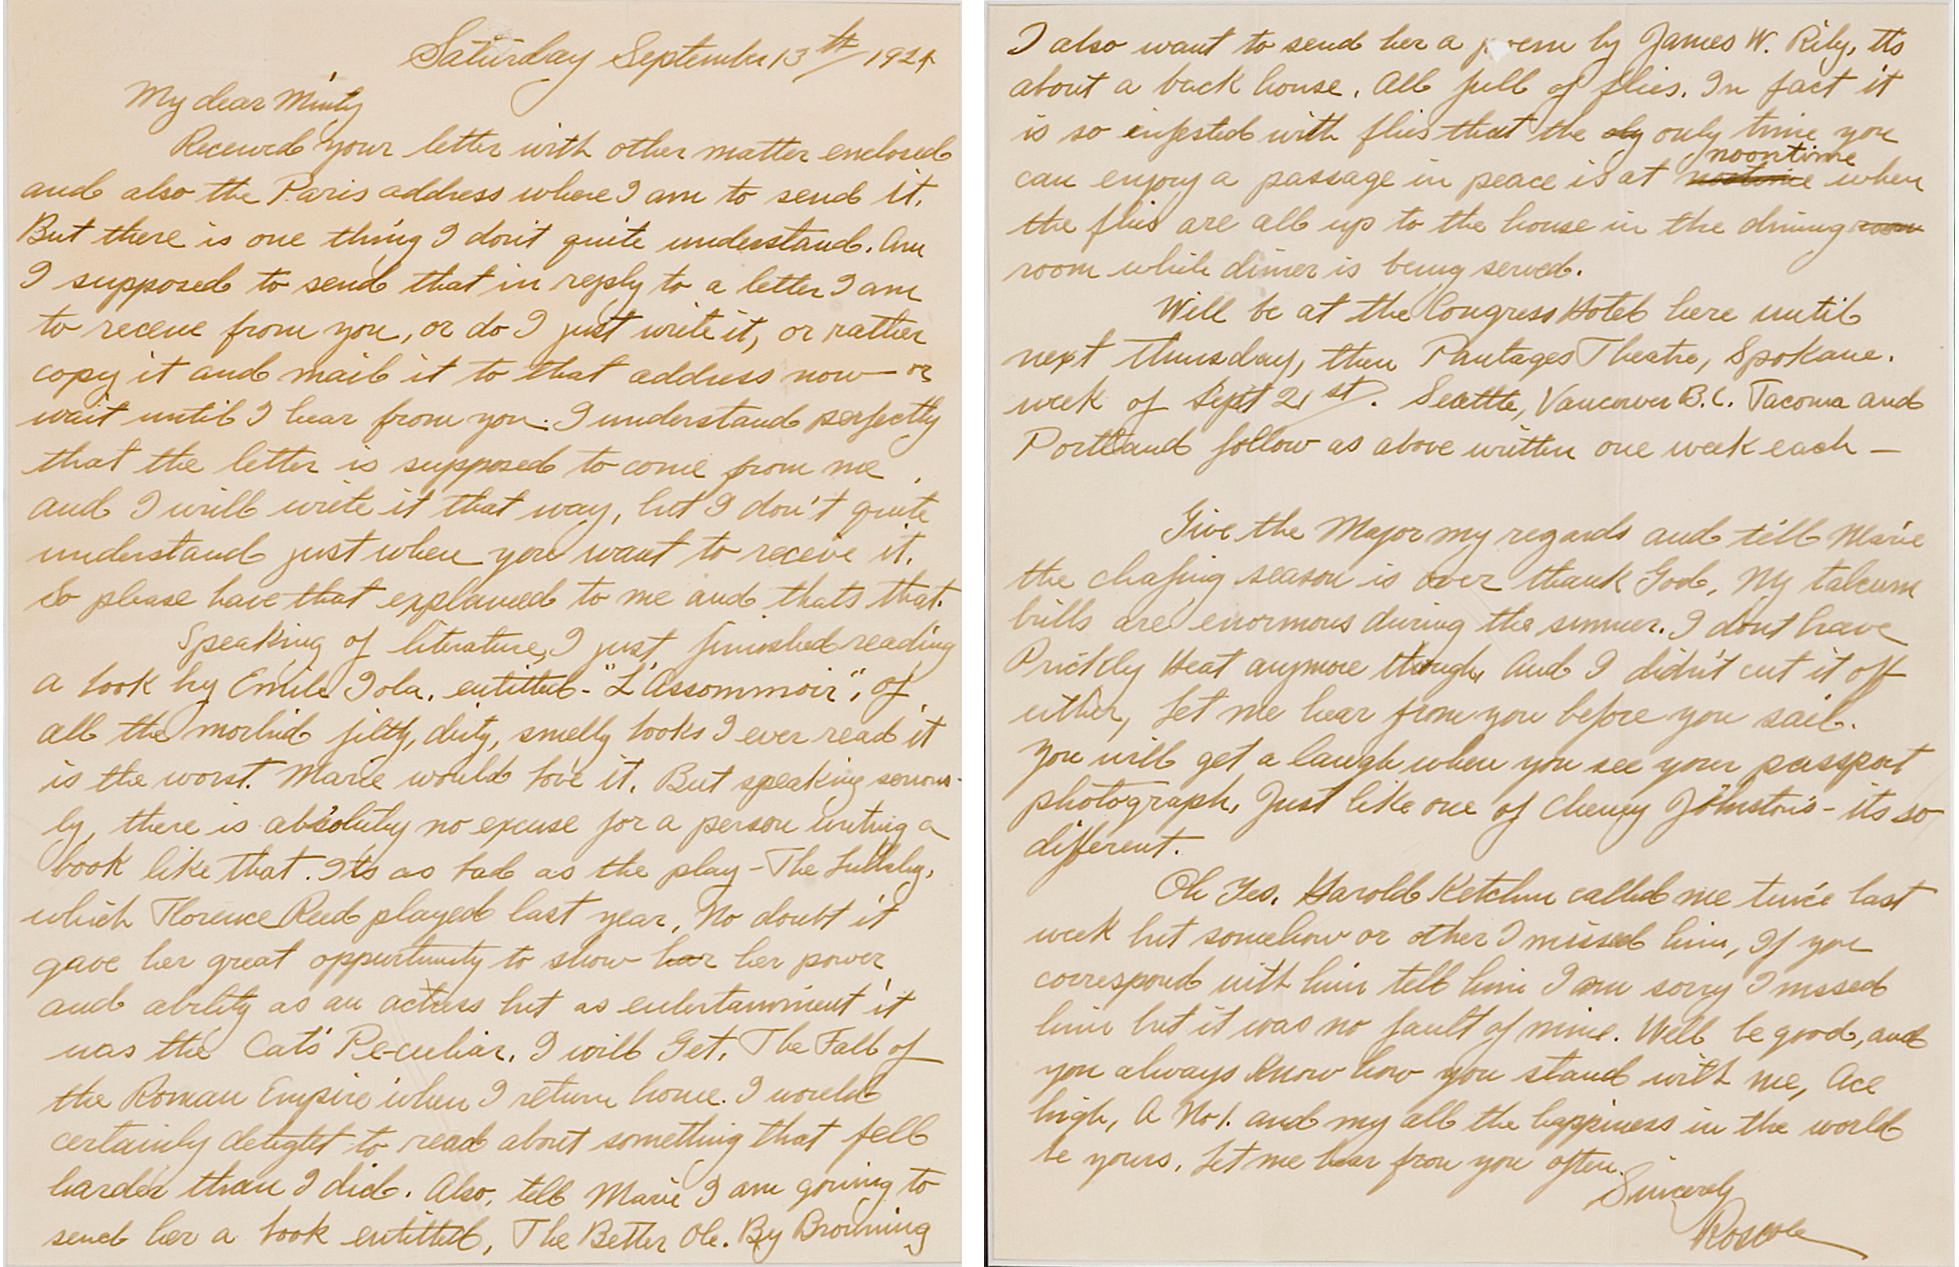 Saturday September 13th/1924
My dear Minty
Received your letter with other matter enclosed
and also the Paris address where I am to send it.
But there is one thing I don't quite understand. Am
I supposed to send that in reply to a letter I am
to receive from you, or do I just write it, or rather
copy it and mail it to that address now — or
wait until I hear from you. I understand perfectly
that the letter is supposed to come from me
and I will write it that way, but I don't quite
understand just when you want to receive it.
So please have that explained to me and thats that.
Speaking of literature, I just finished reading
a book by Emile Zola. entitled - "L'Assommoir", of
all the morbid filty, dirty, smelly books I ever read it
is the worst. Marie would love it. But speaking serious-
ly, there is absoluty no excuse for a person writing a
book like that. Its as bad as the play - The Lullaby,
which Florence Reed played last year. No doubt it
gave her great oppurtunity to show her her power
and ability as an actress but as entertainment it
was the Cats' Pe-culiar. I will Get. The Fall of
the Roman Empire when I return home. I would
certainly delight to read about something that fell
harder than I did. Also, tell Marie I am going to
send her a book entitled, The Better Ole. By Browning
I also want to send her a poem by James W. Rily, Its
about a back house. All full of flies. In fact it
is so infested with flies that the oly only time you
noontime
can enjoy a passage in peace is at when
the flies are all up to the house in the dining room
room while dinner is being served.
Will be at the Congress Hotel here until
next thursday, then Pantages Theatre, Spokane.
week of Sept 21st. Seattle, Vancouver B.C. Tacoma and
Portland follow as above written one week each —
Give the Major my regards and tell Marie
the chafing season is over thank God. My talcum
bills are enormous during the summer. I don't have
Prickly Heat anymore though, And I didn't cut it off
either, Let me hear from you before you sail.
You will get a laugh when you see your passport
photograph. Just like one of Cheney Johnston's - its so
different.
Oh Yes. Harold Ketchum called me twice last
week but somehow or other I missed him, If you
correspond with him tell him I am sorry I missed
him but it was no fault of mine. Well be good, and
you always know how you stand with me, Ace
high, A No 1. and my all the happiness in the world
be yours. Let me hear from you often.
Sincerely
Roscoe